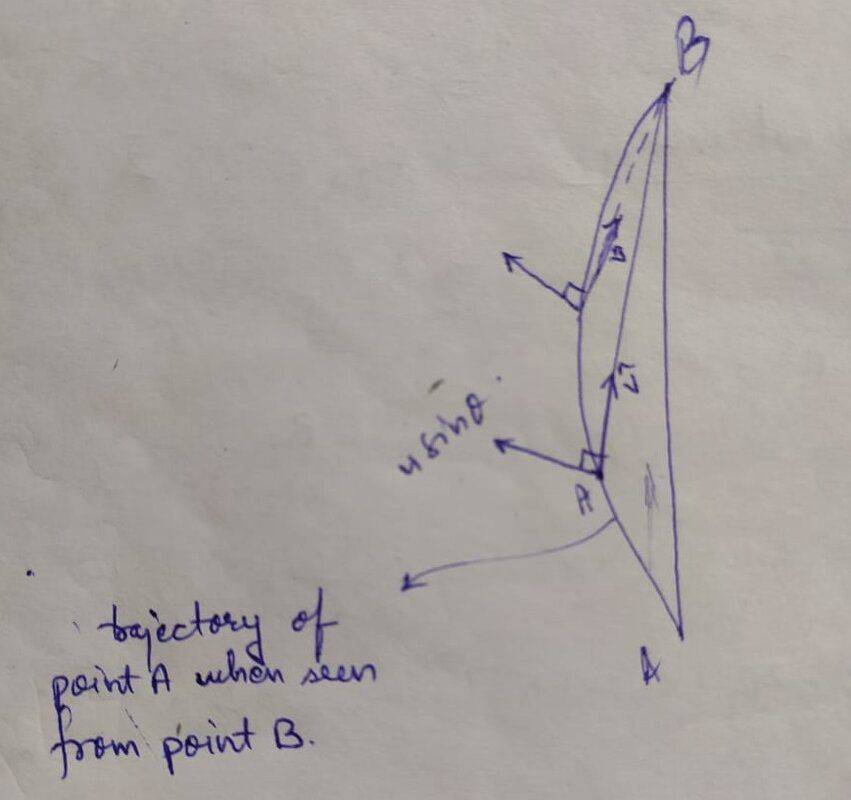 B
v
v
u sinθ.
A
trajectory of
point A when seen
from point B.
A